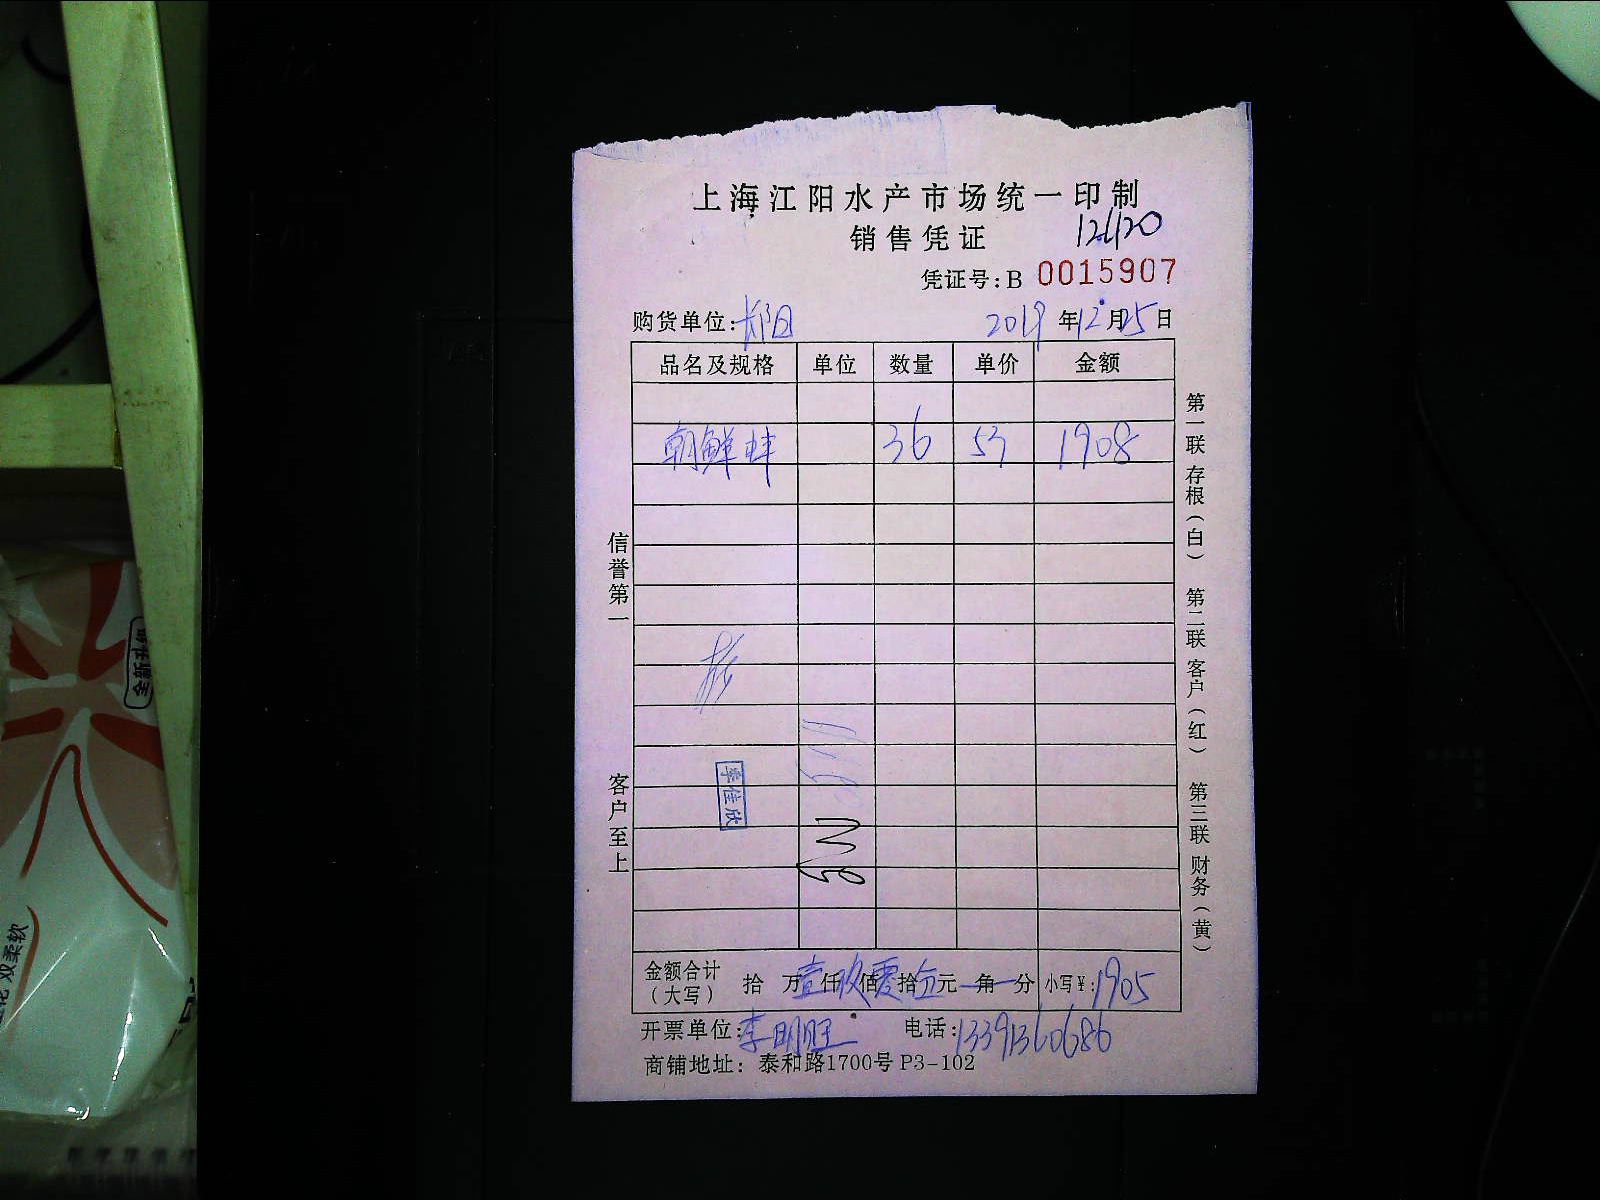 上海江阳水产市场统一印制
销售凭证
凭证号:B 0015907
购货单位:
2019年12月25日
品名及规格 单位 数量 单价 金额
朝鲜蚌 36 53 1908
信誉第一
客户至上
季佳欣
第一联 存根(白) 第二联 客户(红) 第三联 财务(黄)
金额合计(大写) 拾 万壹仟玖佰零拾伍元 角 分 小写¥:1905
开票单位:李明旺 电话:13391360686
商铺地址: 泰和路1700号 P3-102
双柔软